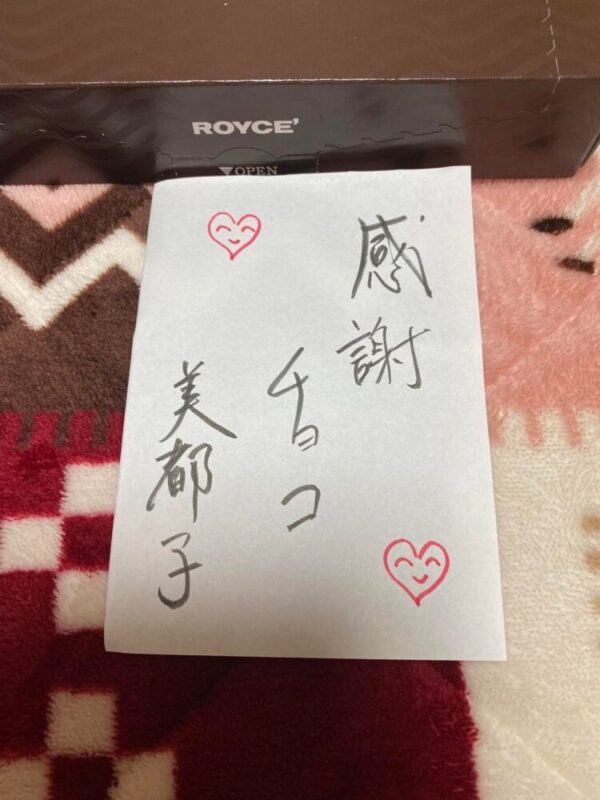 ROYCE'
▼OPEN
感謝
チョコ
美都子